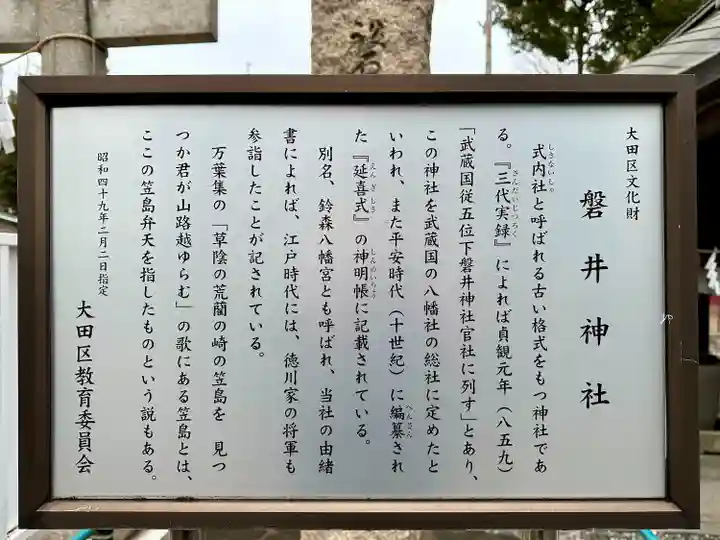 磐
大田区文化財
磐井神社
式内社と呼ばれる古い格式をもつ神社であ
しきないしゃ
る。『三代実録』によれば貞観元年(八五九)
さんだいじつろく
「武蔵国従五位下磐井神社官社に列す」とあり、
この神社を武蔵国の八幡社の総社に定めたと
いわれ、また平安時代(十世紀)に編纂され
へんさん
た『延喜式』の神明帳に記載されている。
えんぎしき
しんめいちょう
別名、鈴森八幡宮とも呼ばれ、当社の由緒
書によれば、江戸時代には、徳川家の将軍も
参詣したことが記されている。
万葉集の「草陰の荒藺の崎の笠島を 見つ
つか君が山路越ゆらむ」の歌にある笠島とは、
ここの笠島弁天を指したものという説もある。
昭和四十九年二月二日指定
大田区教育委員会